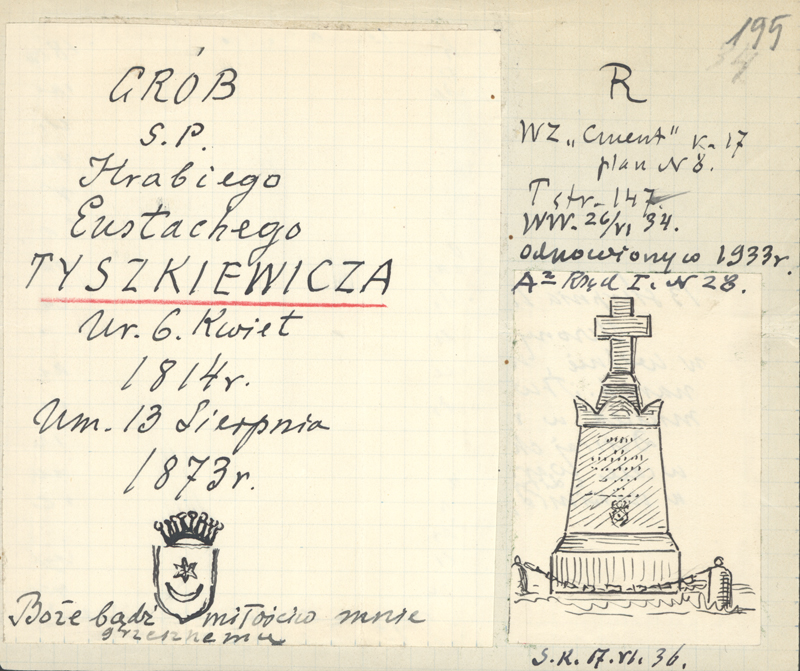 GRÓB
S.P.
Hrabiego
Eustachego
TYSZKIEWICZA
Ur. 6. Kwiet
1814r.
Um. 13 Sierpnia
1873r.
Boże bądź miłościw mnie
grzesznemu
195
R
WZ „Cment" k. 17
plan N 8.
T str. 147.
WW. 26/VI 34.
odnowiony w 1933r.
Az Rząd I. N 28.
S.K. 17.VI.36.